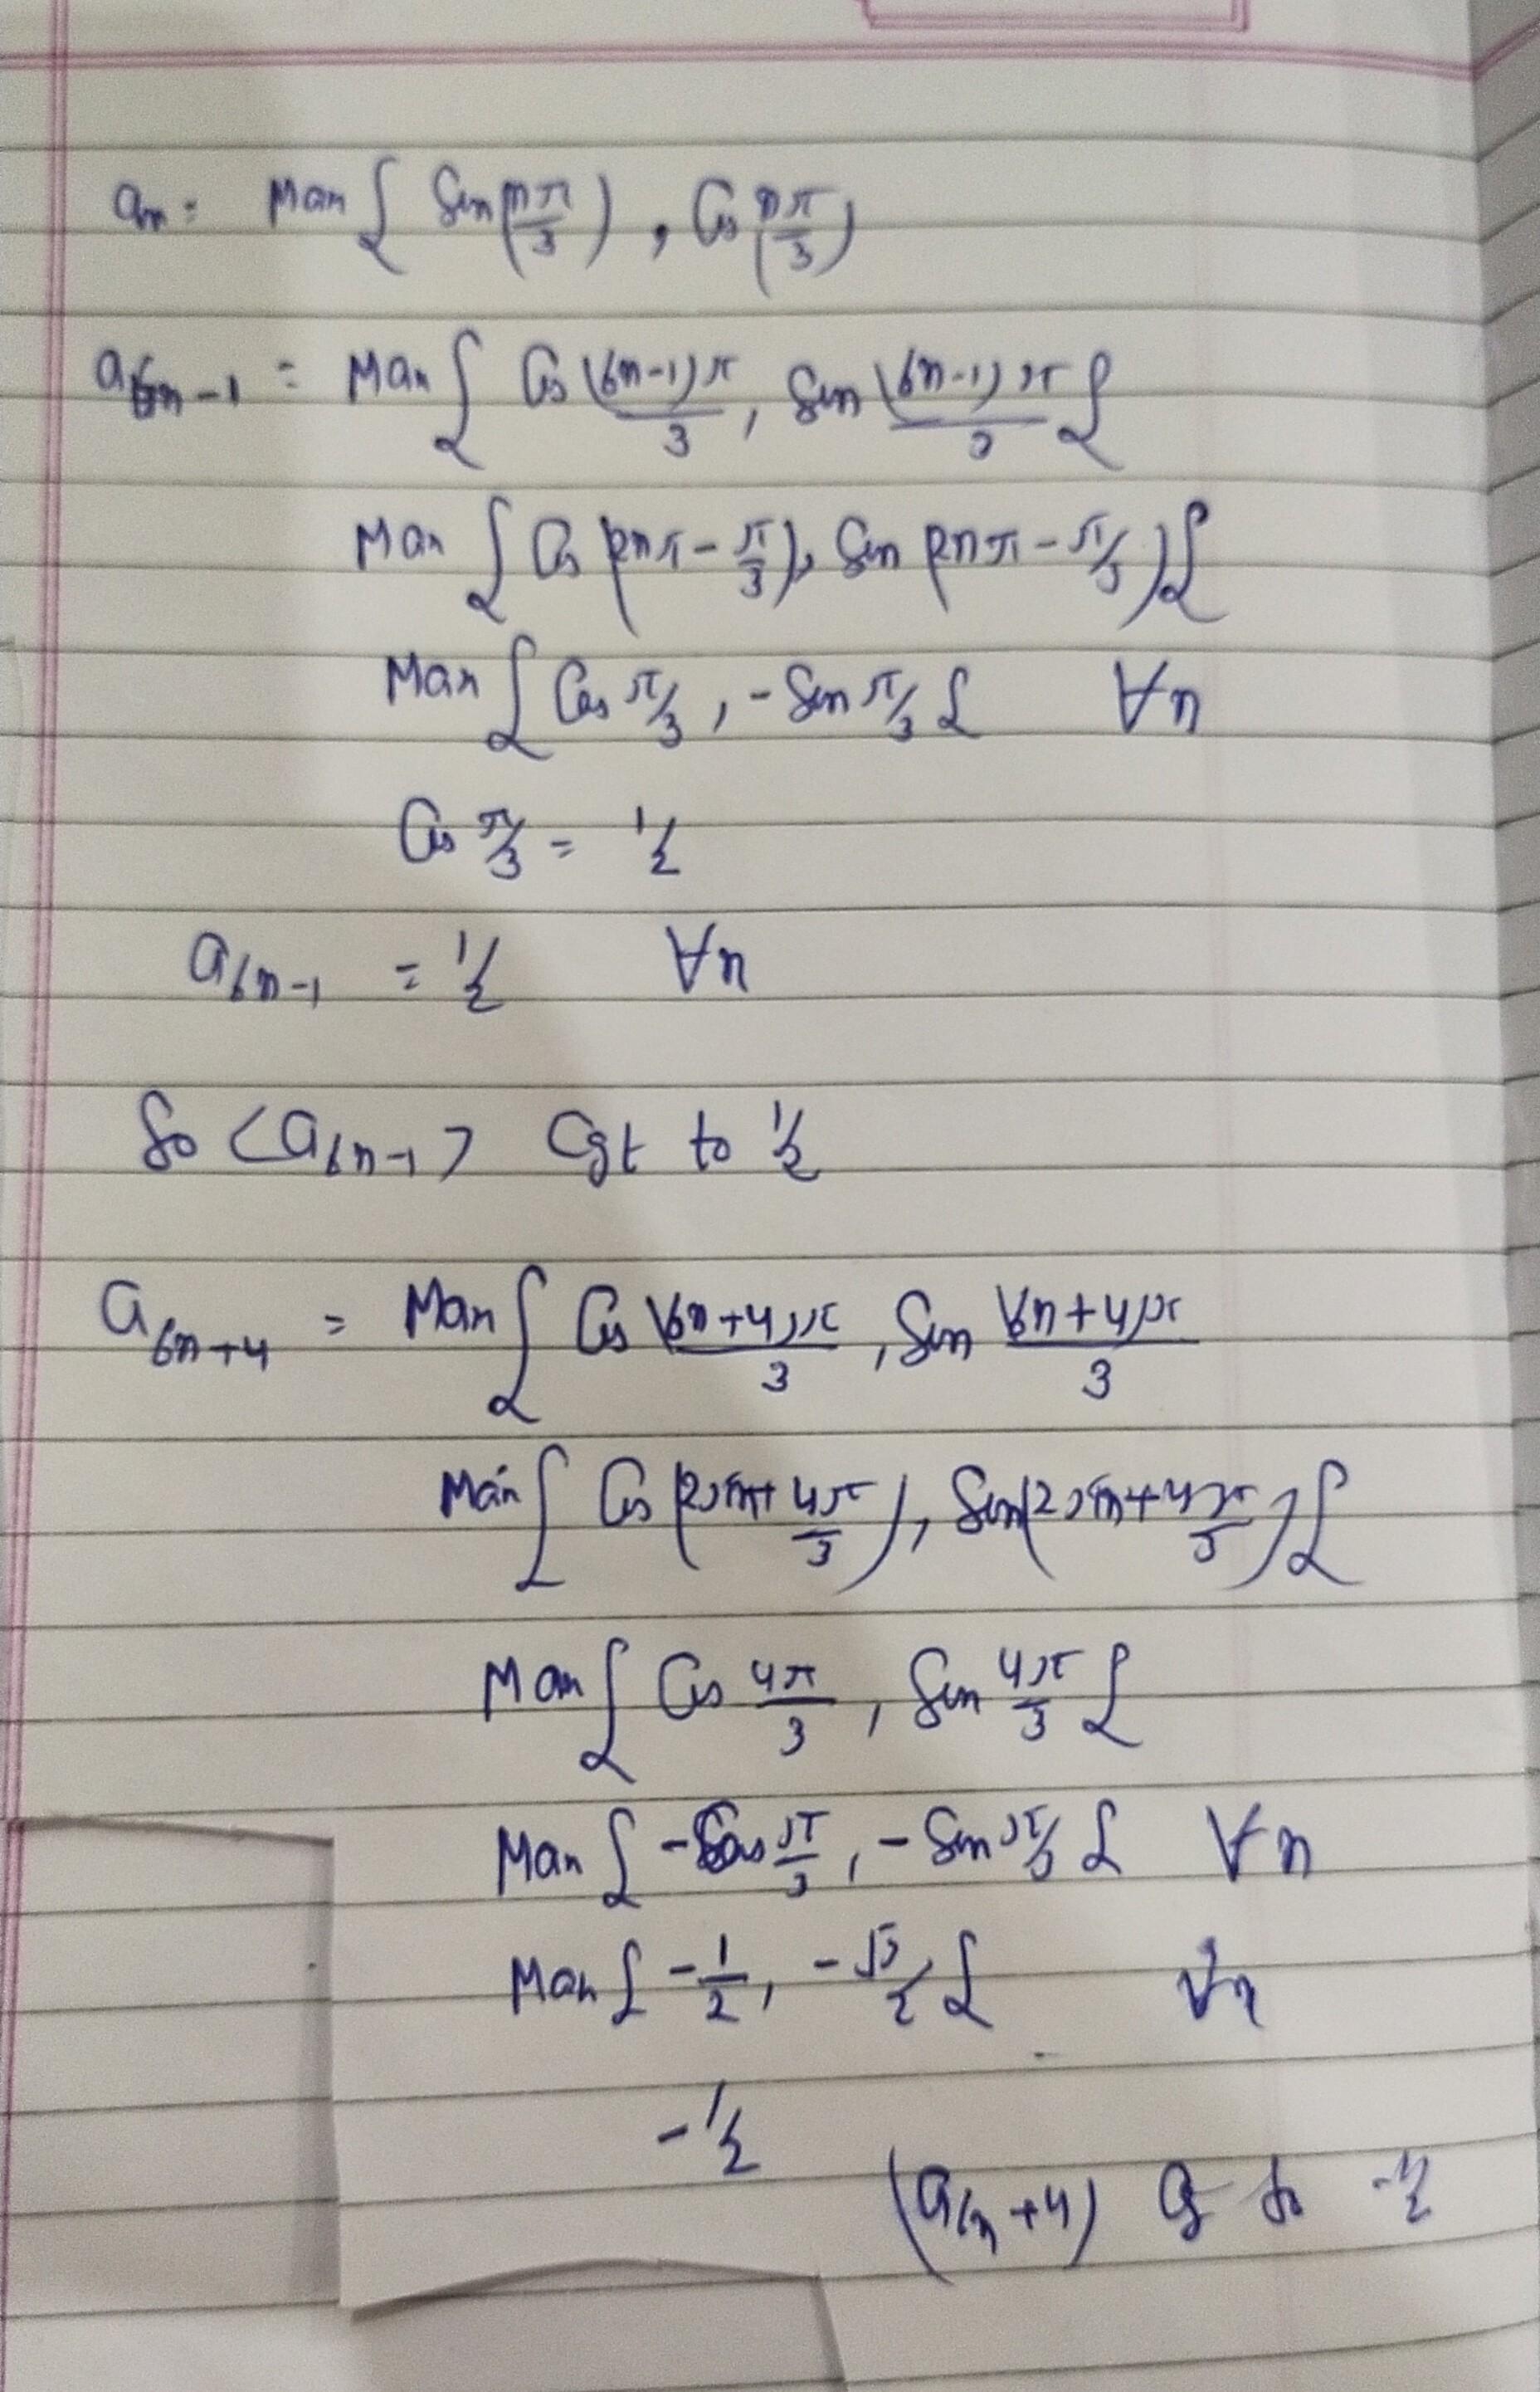 an = Max { Sin(nπ/3) , Cos(nπ/3)
a6n-1 = Max { Cos (6n-1)π/3 , Sin (6n-1)π/3 }
Max { Cos (2nπ - π/3), Sin (2nπ - π/3) }
Max { Cos π/3 , - Sin π/3 } ∀n
Cos π/3 = 1/2
a6n-1 = 1/2 ∀n
So <a6n-1> Cgt to 1/2
a6n+4 = Max { Cos (6n+4)π/3 , Sin (6n+4)π/3
Max { Cos (2πn + 4π/3), Sin(2πn + 4π/3) }
Max { Cos 4π/3 , Sin 4π/3 }
Max { - Cos π/3 , - Sin π/3 } ∀n
Max { -1/2 , -√3/2 } ∀n
-1/2
(a6n+4) Cgt to -1/2